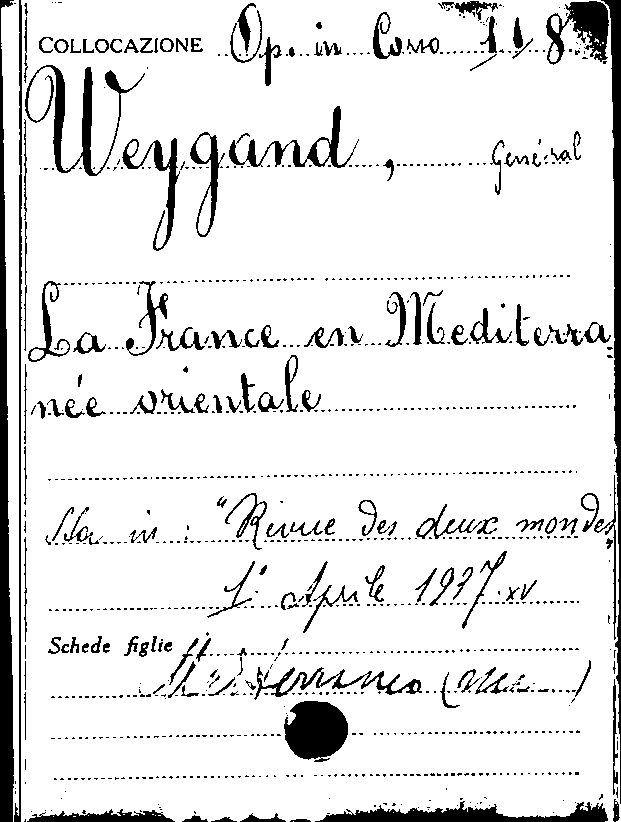 COLLOCAZIONE Op. in Corso 118
Weygand, Général
La France en Mediterra=
née orientale
Sta in : "Revue des deux mondes"
1° Aprile 1937. XV
Schede figlie
Mediterraneo (